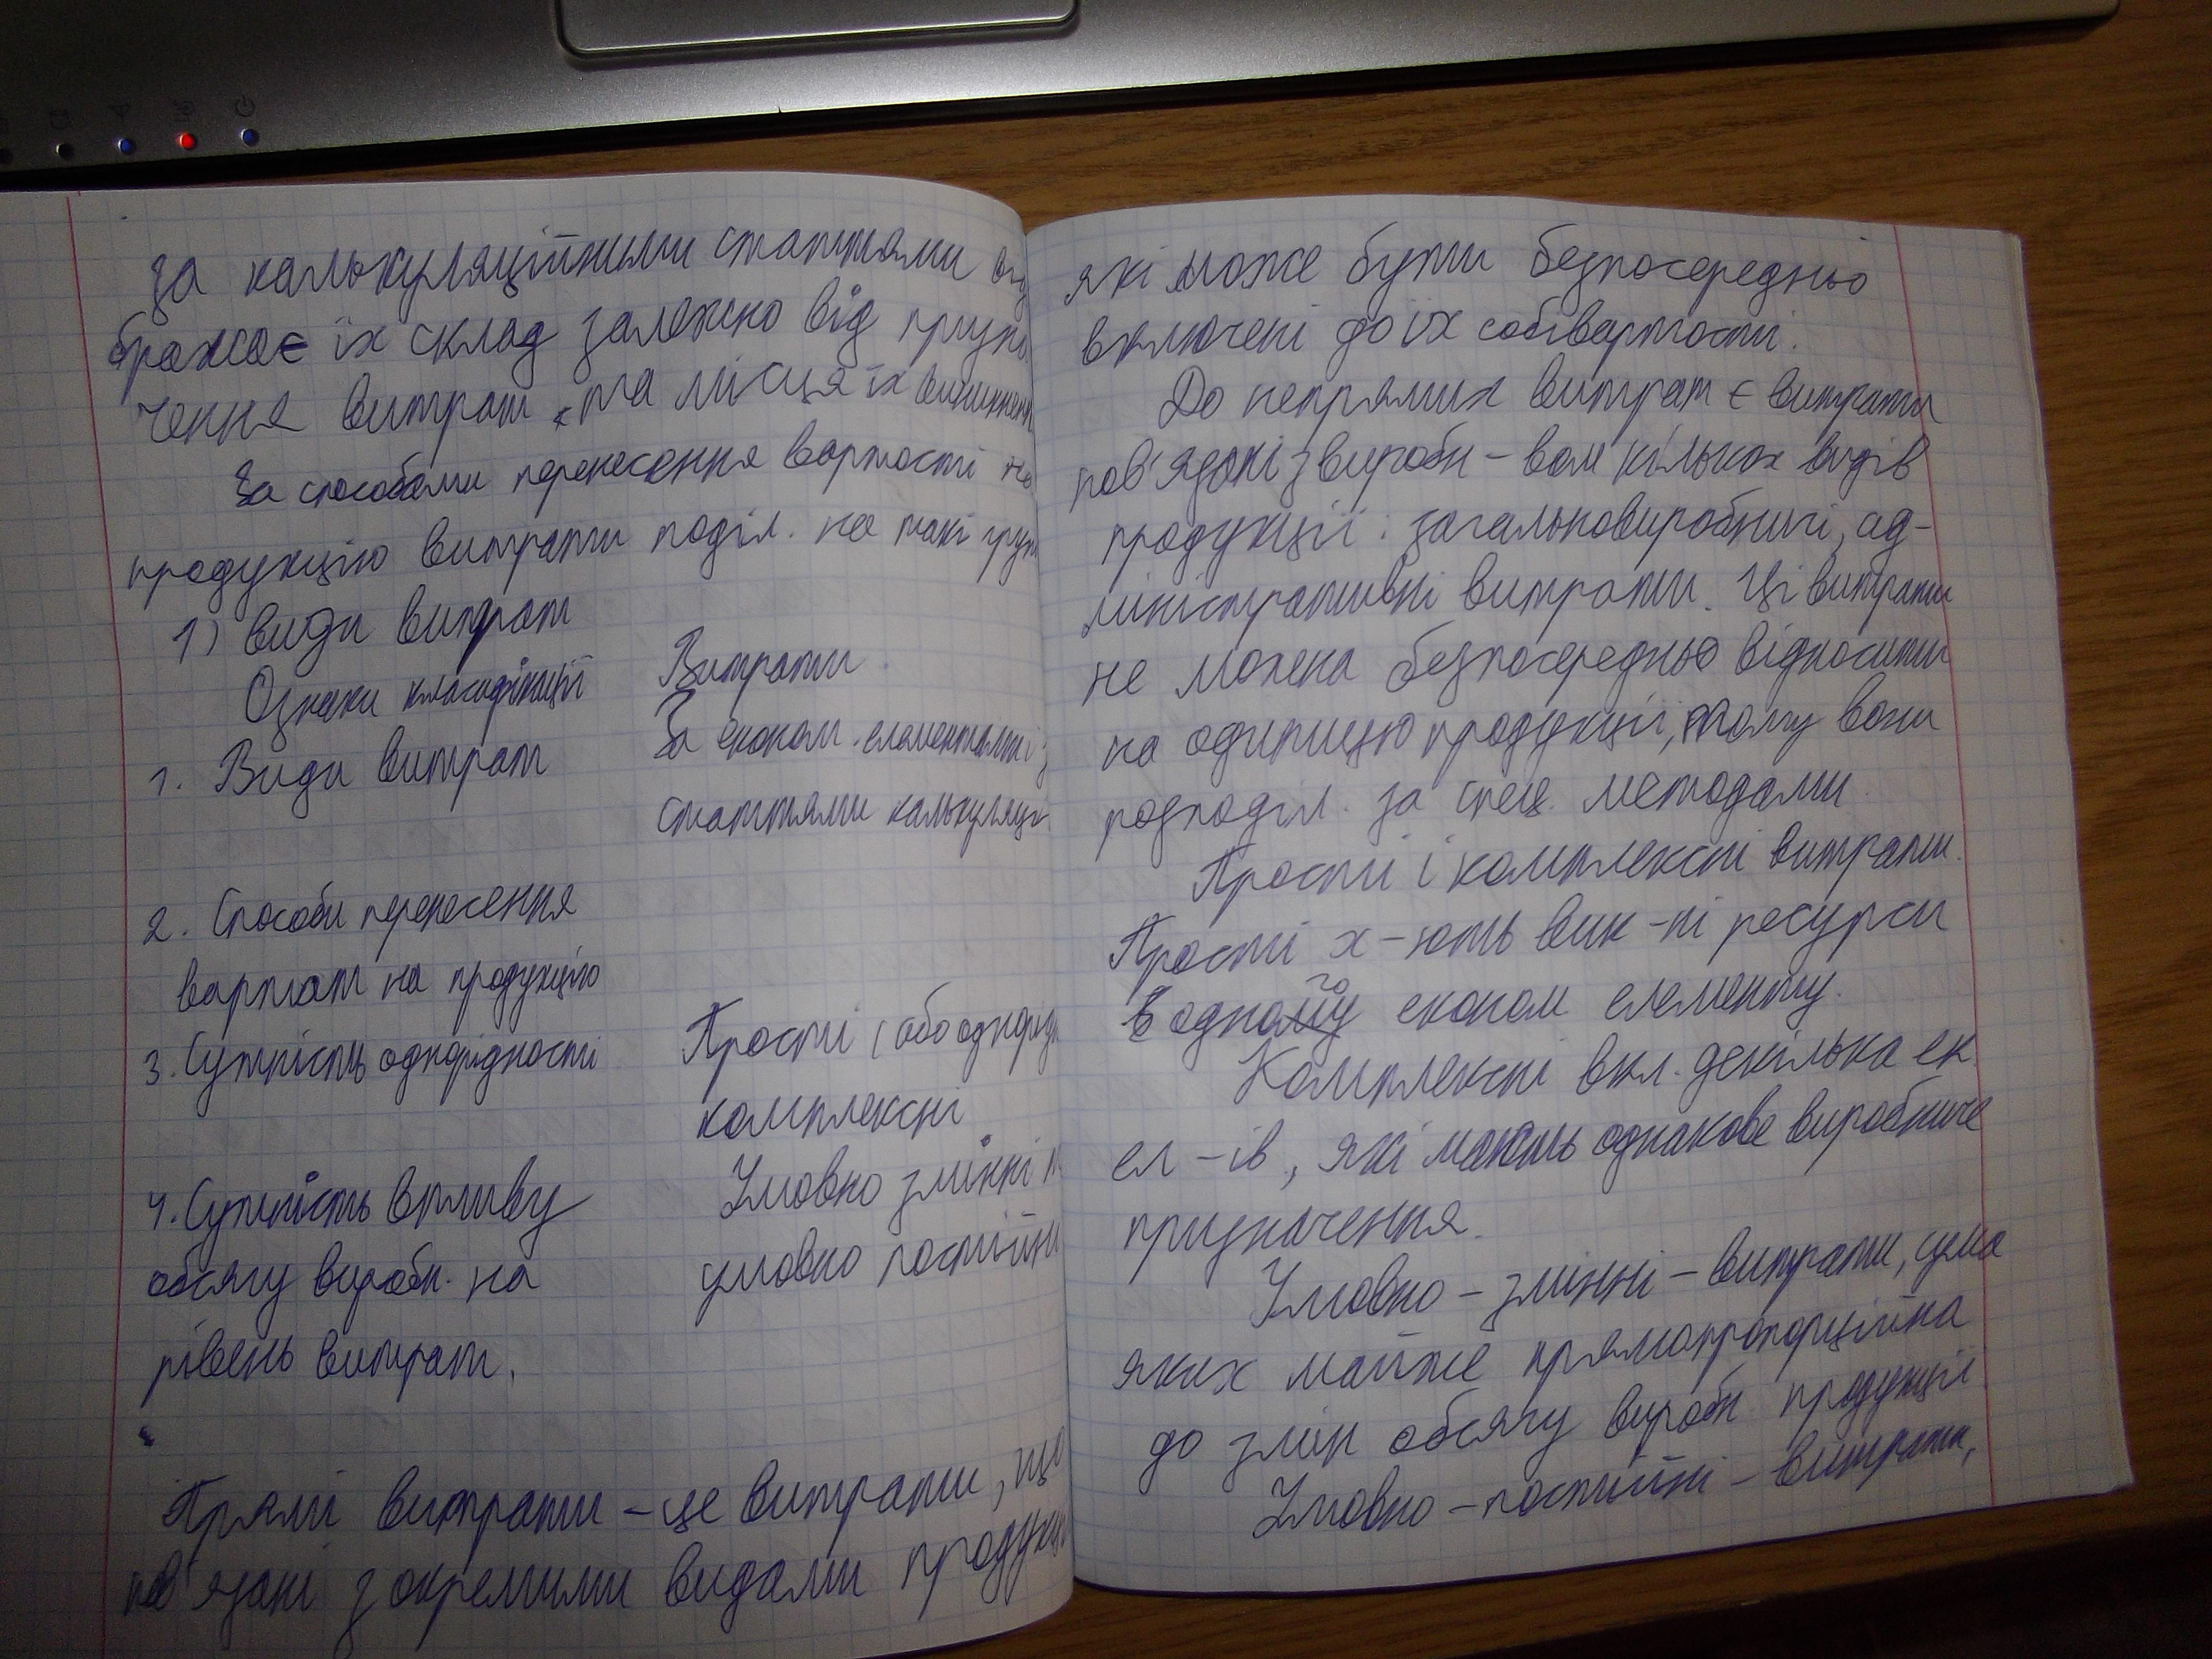 за калькуляційними статтями від
бражає їх склад залежно від призна
чення витрат та місця їх виникнення
За способами перенесення вартості на
продукцію витрати поділ. на такі груп
1) види витрат
Ознаки класифікації Витрати
1. Види витрат За економ. елементами і з
статтями калькуляці
2. Способи перенесення
вартост на продукцію
3. Сутність однорідності Прості (або однорід
комплексні
4. Сутність впливу Умовно змінні
обсягу виробн. на умовно постійни
рівень витрат.
Прямі витрати – це витрати, що
пов'язані з окремими видами продукц
які може бути безпосередньо
включені до їх собівартості.
До непрямих витрат є витрати
пов'язані з виробн – вом кількох видів
продукції: загальновиробничі, ад-
міністративні витрати. Ці витрати
не можна безпосередньо відносити
на одиницю продукції, тому вони
розподіл. за спец. методами.
Прості і комплексні витрати.
Прості х – ють вик – ні ресурси
в одного економ елементу.
Комплексні вкл. декілька ек.
ел – ів, які мають однакове виробниче
призначення.
Умовно – змінні – витрати, сума
яких майже прямопропорційна
до змін обсягу виробн. продукції
Умовно – постійні – витрати,